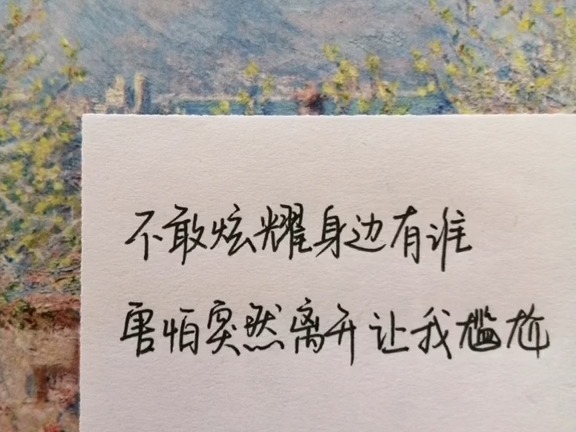 不敢炫耀身边有谁
害怕突然离开让我尴尬